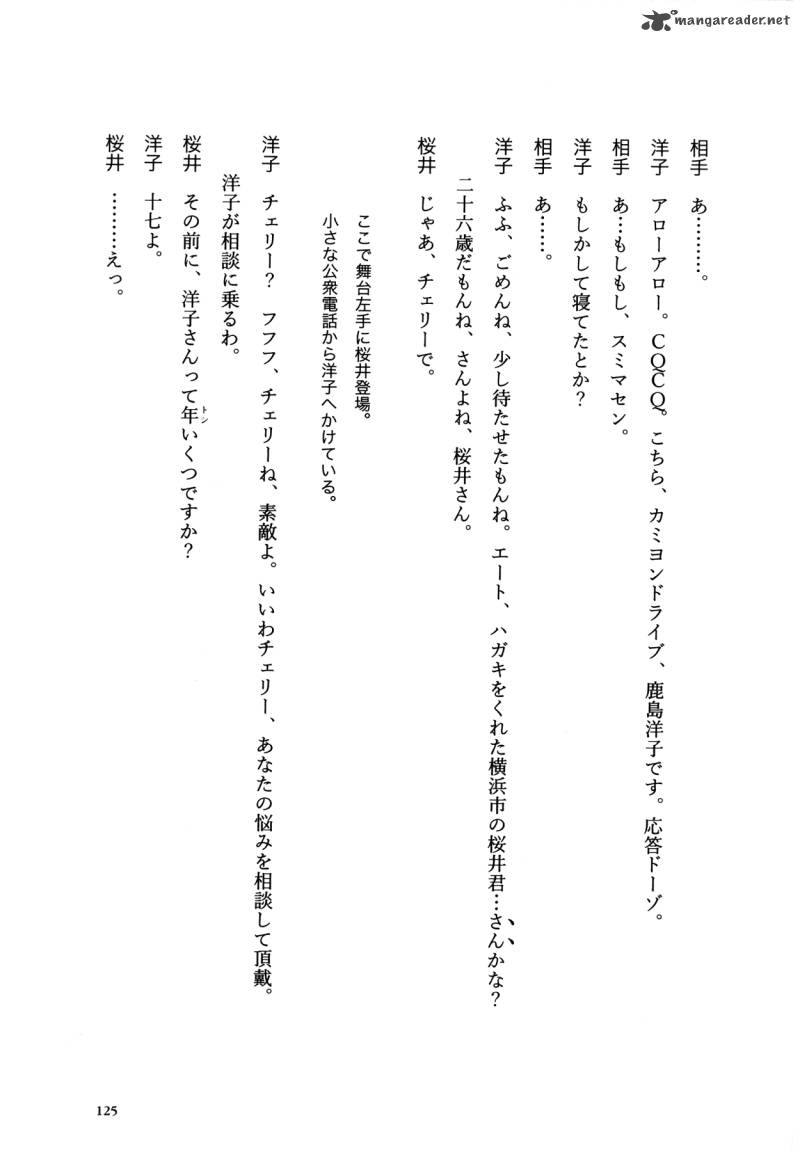 mangareader.net
相手　あ………。
洋子　アローアロー。ＣＱＣＱ。こちら、カミヨンドライブ、鹿島洋子です。応答ドーゾ。
相手　あ…もしもし、スミマセン。
洋子　もしかして寝てたとか？
相手　あ……。
洋子　ふふ、ごめんね、少し待たせたもんね。エート、ハガキをくれた横浜市の桜井君…さんかな？
二十六歳だもんね、さんよね、桜井さん。
桜井　じゃあ、チェリーで。
ここで舞台左手に桜井登場。
小さな公衆電話から洋子へかけている。
洋子　チェリー？　フフフ、チェリーね、素敵よ。いいわチェリー、あなたの悩みを相談して頂戴。
洋子が相談に乗るわ。
桜井　その前に、洋子さんって年トシいくつですか？
洋子　十七よ。
桜井　………えっ。
125